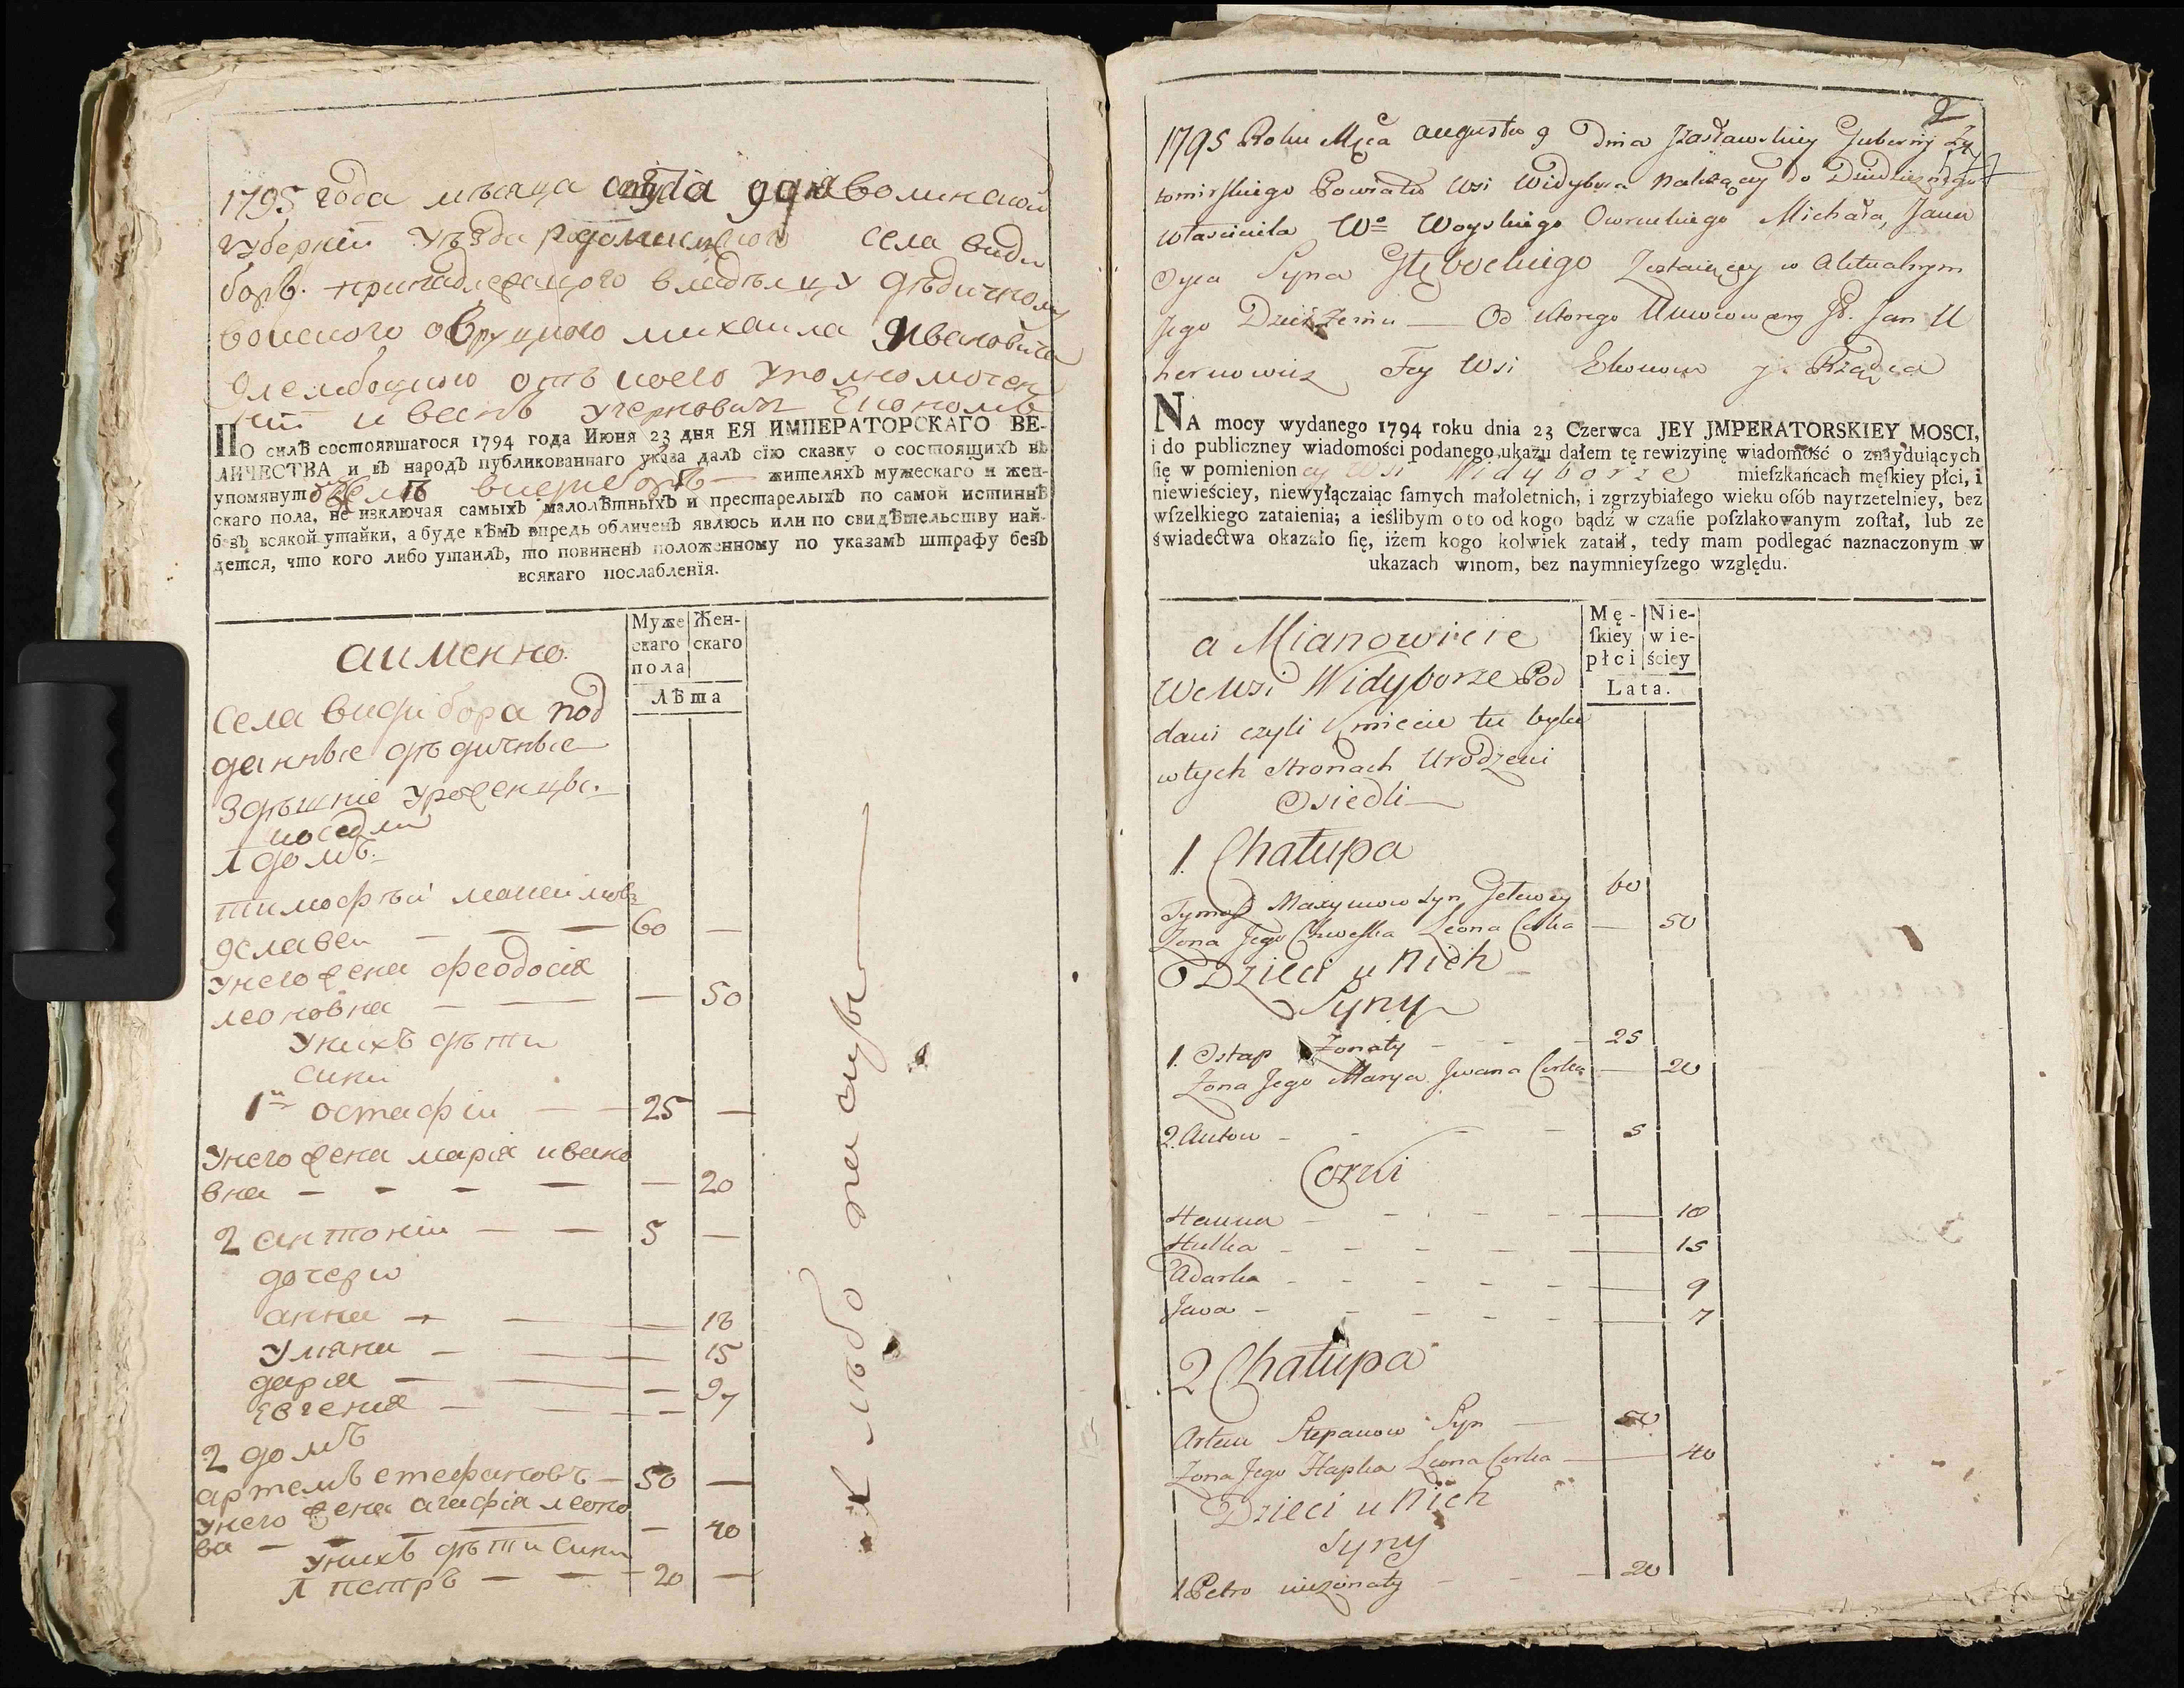 1795 года мѣсяца августа 9 дня волинской
губернїи уѣзда радомисльского села види
бора принадлежащого владѣлцу дѣдичному
войского овруцкого михаила Ивановича
Глембоцкого отъ коего уполномочен
и весѣ учерновичъ Економъ
ПО силѣ состоявшагося 1794 года Июня 23 дня ЕЯ ИМПЕРАТОРСКАГО ВЕ-
ЛИЧЕСТВА и въ народъ публикованнаго указа далъ сїю сказку о состоящихъ въ
упомянутомъ селѣ видиборѣ жителяхъ мужескаго и жен-
скаго пола, не изключая самыхъ малолѣтныхъ и престарелыхъ по самой истиннѣ
безъ всякой утайки, а буде кѣмъ впредь обличенъ явлюсь или по свидѣтельству най-
дется, что кого либо утаилъ, то повиненъ положенному по указамъ штрафу безъ
всякаго послабленїя.
Муже скаго пола
Жен- скаго
Лѣта
аименно
села видибора под
данные дѣдичные
здѣшніе уроженцы.
1 домъ.
тимофѣй максимовъ
60 —
унего жена феодосія
леоновна — 50
унихъ дѣти
сини
1й остафіи — 25 —
унего жена марія ивано
вна — — 20
2 антоніи — 5 —
дочери
анна — 18
уляна — 15
дарія — 9
Евгенія — 7
2 домъ
артемъ стефановъ — 50 —
унего жена агафія леоно
ва — — 40
унихъ дѣти сини
1 петръ — 20 —
2
1795 Roku Mca augusta 9 Dnia Jzasławskiey Gubernij Ży
tomirskiego Powiatu Wsi Widybora należącey do Dziedzicznego
własciciela Wo Woyskiego Owruckiego Michała, Jana
Oyca Syna Głębockiego Zostaiącey w Aktualnym
Jego Dzierżeniu — Od ktorego Umocowany JP. Jan U
hernowicz Tey Wsi Ekonom y Rządca
NA mocy wydanego 1794 roku dnia 23 Czerwca JEY JMPERATORSKIEY MOSCI,
i do publiczney wiadomości podanego ukazu dałem tę rewizyinę wiadomość o znayduiących
ſię w pomienioney Wsi Widyborze mieſzkańcach męſkiey płci, i
niewieściey, niewyłączaiąc ſamych małoletnich, i zgrzybiałego wieku oſób nayrzetelniey, bez
wſzelkiego zataienia; a ieślibym o to od kogo bądź w czaſie poſzlakowanym zoſtał, lub ze
świadectwa okazało ſię, iżem kogo kolwiek zataił, tedy mam podlegać naznaczonym w
ukazach winom, bez naymnieyſzego względu.
Mę- ſkiey płci
Nie- wie- ściey
Lata.
a Mianowicie
We Wsi Widyborze Pod
dani czyli Kmiecie tu tylko
w tych Stronach Urodzeni
Osiedli
1. Chałupa
60
Żona Jego Chweska Leona Corka — 50
Dzieci u Nich
Syny
1. Ostap Żonaty — 25
Żona Jego Marya Jwana Corka — 20
2. Anton — 5
Corki
Hanna — 18
Hulka — 15
Adarka — 9
Jewa — 7
2 Chałupa
Artem Stepanow Syn — 50
Żona Jego Hapka Leona Corka — 40
Dzieci u Nich
Syny
1. Petro nieżonaty — 20